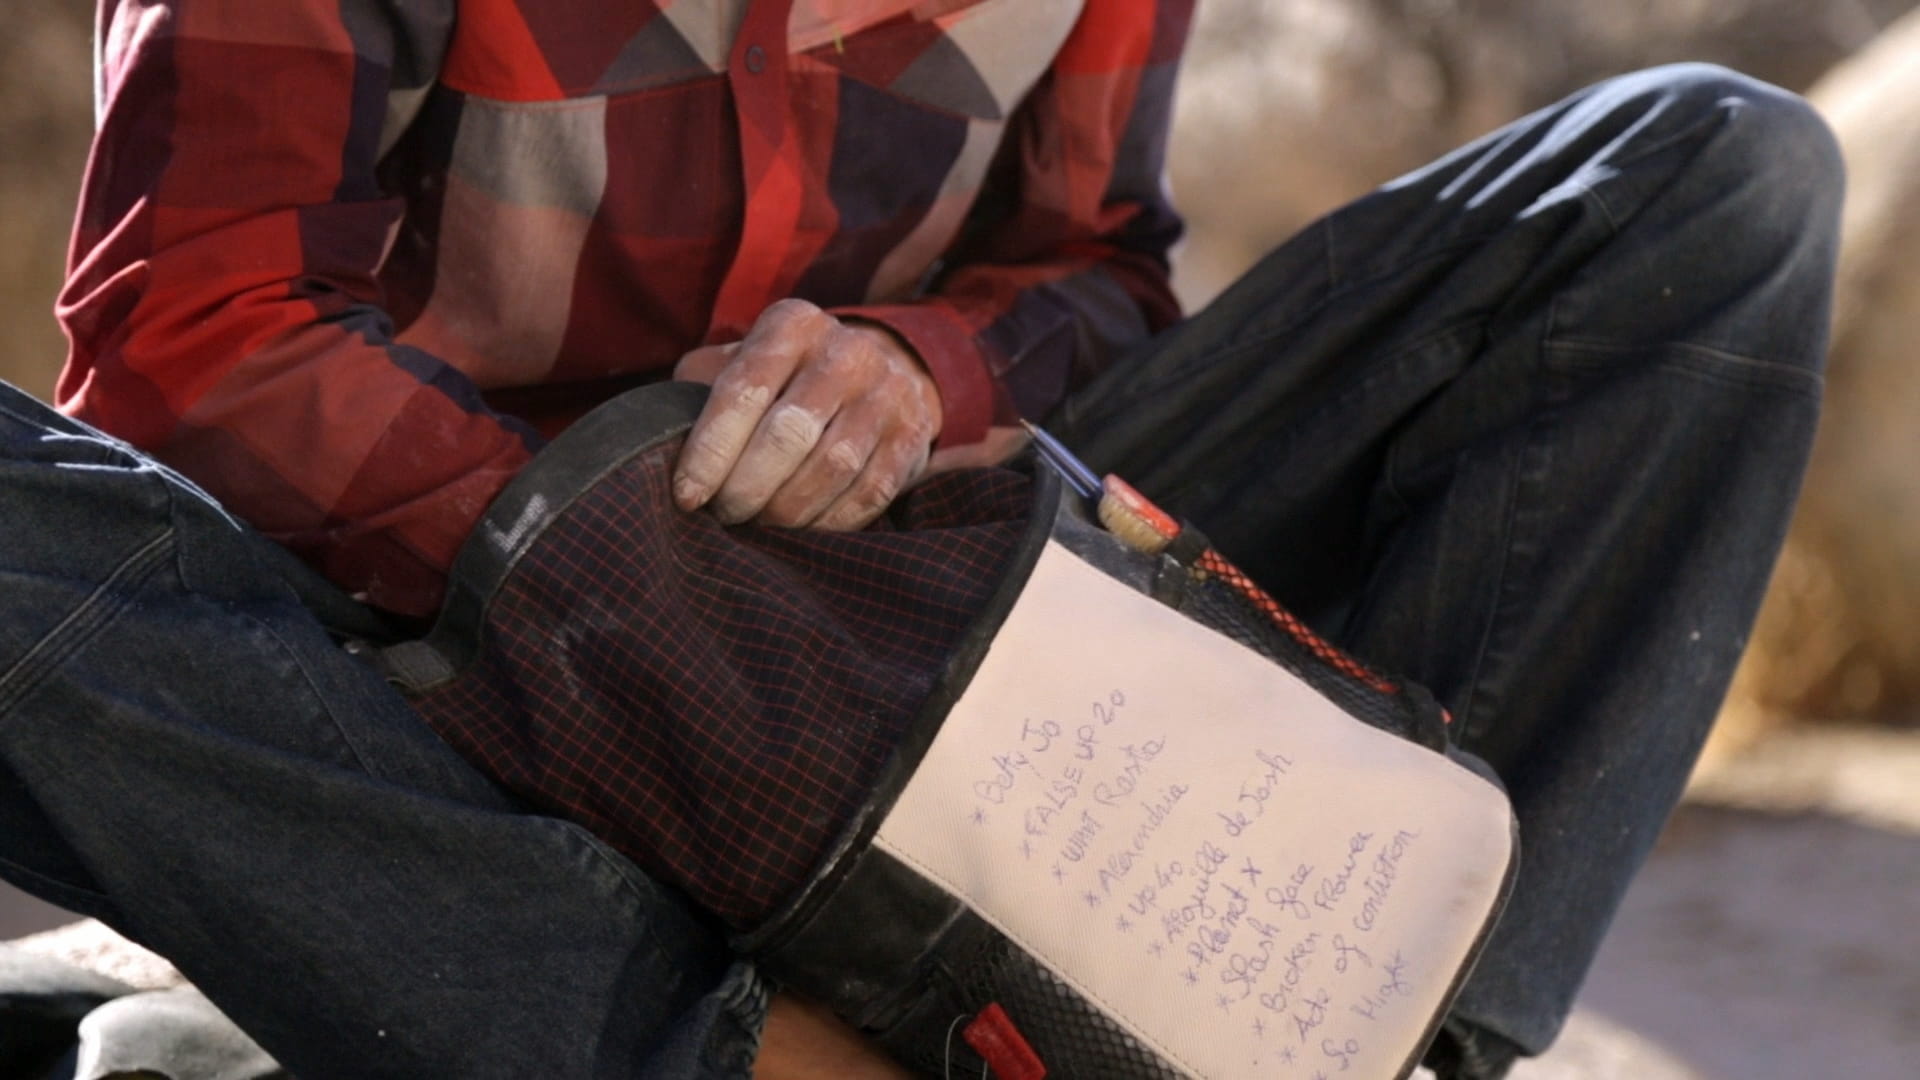 * Betty Jo
* FALSE UP 20
* WHAT Rasta
* Alexandria
* UP 40
* Aiguille de Josh
* Planet X
* Slash face
* Broken Flower
* Acts of contrition
* So High